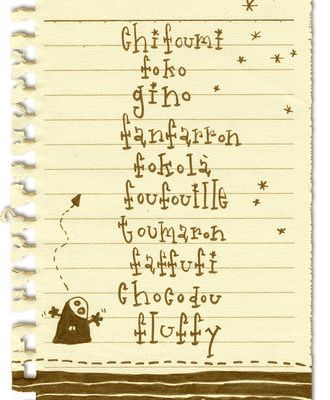 Chifoumi
foko
gino
fanfarron
fokolà
foufouille
toumaron
faffufi
Chocodou
fluffy